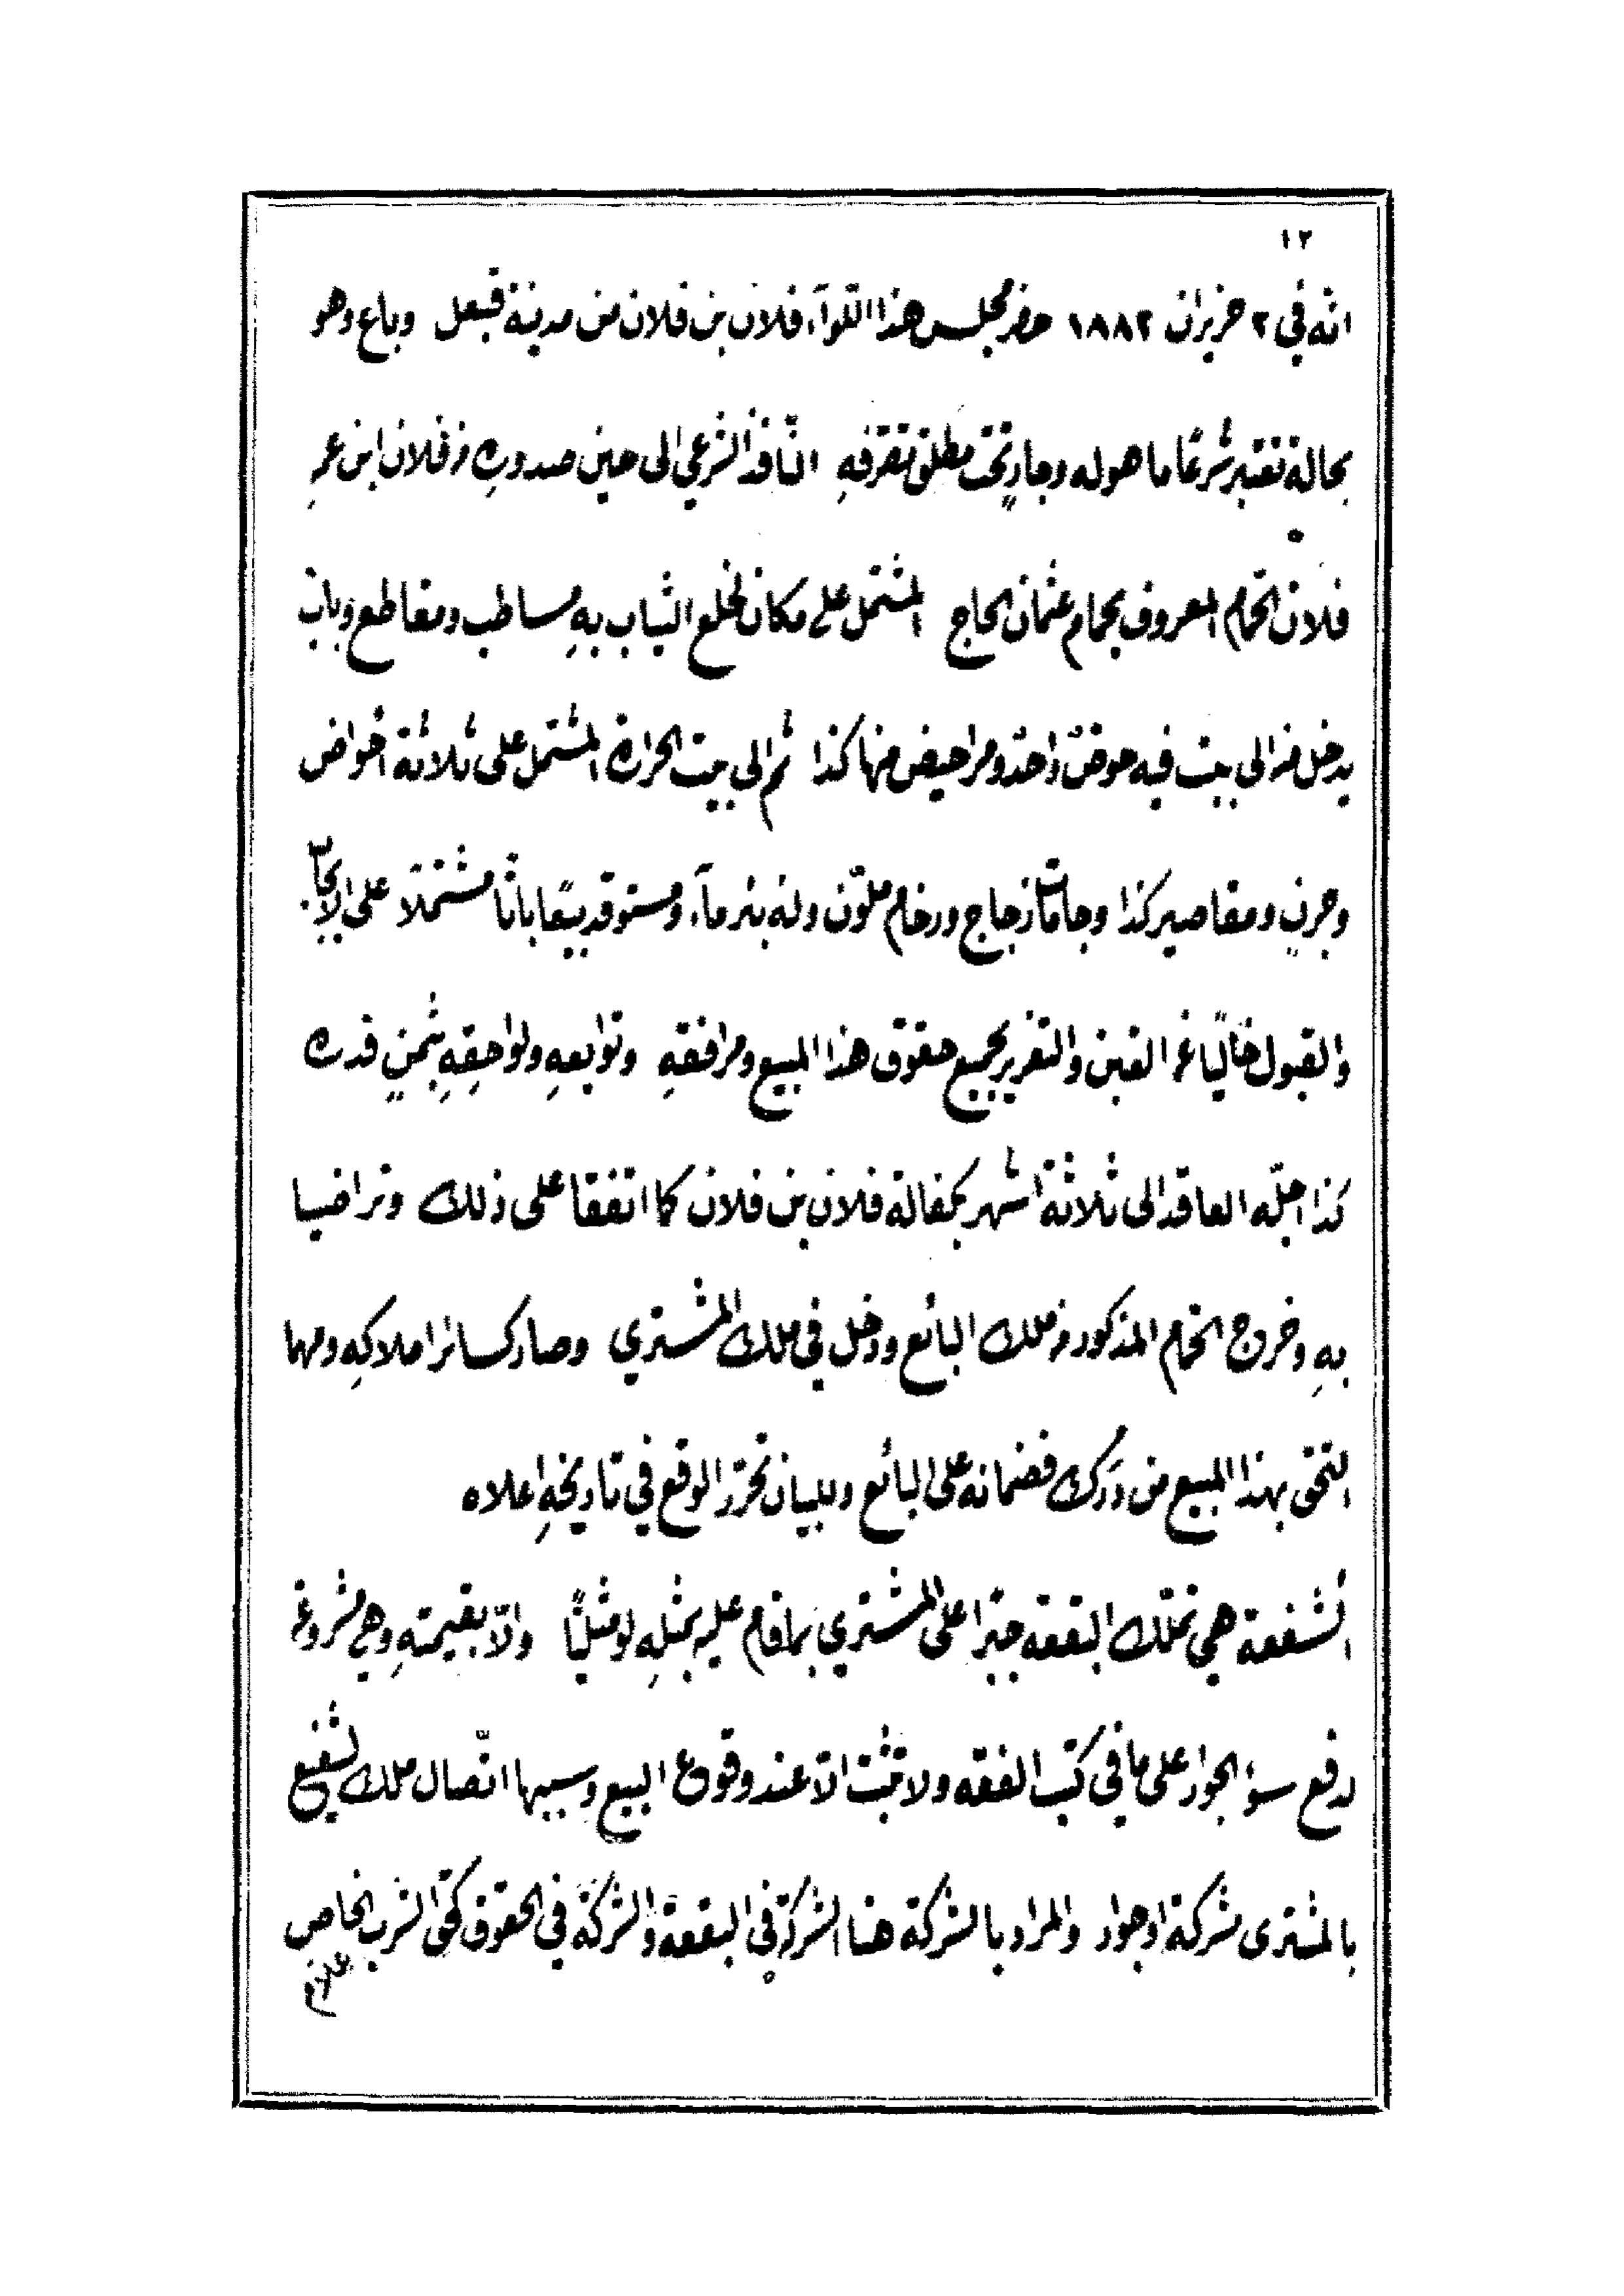 ١٢
انه في ٢ حزيران ١٨٨٢ حضر مجلس هذا اللوآء فلان بن فلان من مدينة وباع وهو
بحالة تعتبر شرعًا ما هو له وجارٍ تحت مطلق تصرفهِ النّافذ الشرعي الى حين صدورهِ من فلان ابن عمرِ
فلان الحمّام المعروف بحمام عثمان الحاج المشتمل على مكان لخلع الثياب بهِ مساطب ومقاطع وباب
يدخل منه الى بيت فيه حوض واحد ومراحيض منها كذا ثم الى بيت الحرارة المشتمل على ثلاثة احواض
وجرنٍ ومقاصير كذا وجامات زجاج ورخام ملوّن وله بئر مآء ومستوقد بيعًا باتًا مشتملًا على الايجاب
والقبول خاليًا عن الغبن والتغرير بجميع حقوق هذا المبيع ومرافقهِ وتوابعهِ ولواحقِهِ بثمنٍ قدره
كذا اجلّه العاقد الى ثلاثة اشهر بكفالة فلان بن فلان كما اتفقا على ذلك وتراضيا
بهِ وخرج الحمّام المذكور من ملك البائع ودخل في ملك المشتري وصار كسائر املاكِهِ ومهما
التحق بهذا المبيع من دَرَك فضمانه على البائع وللبيان تحرّر الوقع في تاريخهِ اعلاه
الشفعة هي تملّك البقعة جبرًا على المشتري بما قام عليه بمثلِهِ لو مثليًّا والّا بقيمتهِ وهي مشروعة
لدفع سوء الجوار على ما في كتب الفقه ولا تثبت الّا عند وقوع البيع وسببها اتّصال ملك الشفيع
بالمشترى شركة او جوار والمراد بالشركة هنا الشركة في البقعة والشركة في الحقوق كحق الشرب الخاص